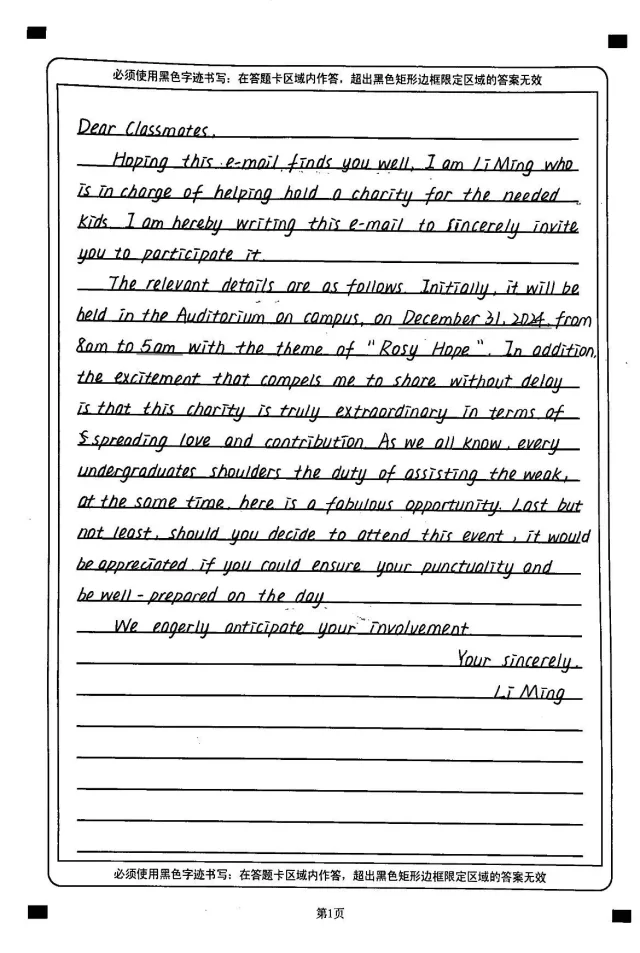 必须使用黑色字迹书写：在答题卡区域内作答，超出黑色矩形边框限定区域的答案无效
Dear Classmates,
Hoping this e-mail finds you well, I am Li Ming who
is in charge of helping hold a charity for the needed
kids. I am hereby writing this e-mail to sincerely invite
you to participate it.
The relevant details are as follows. Initially, it will be
held in the Auditorium on campus, on December 31, 2024, from
8am to 5am with the theme of "Rosy Hope". In addition,
the excitement that compels me to share without delay
is that this charity is truly extraordinary in terms of
spreading love and contribution. As we all know, every
undergraduates shoulders the duty of assisting the weak,
at the same time, here is a fabulous opportunity. Last but
not least, should you decide to attend this event, it would
be appreciated if you could ensure your punctuality and
be well-prepared on the day
We eagerly anticipate your involvement.
Your sincerely,
Li Ming
必须使用黑色字迹书写：在答题卡区域内作答，超出黑色矩形边框限定区域的答案无效
第1页